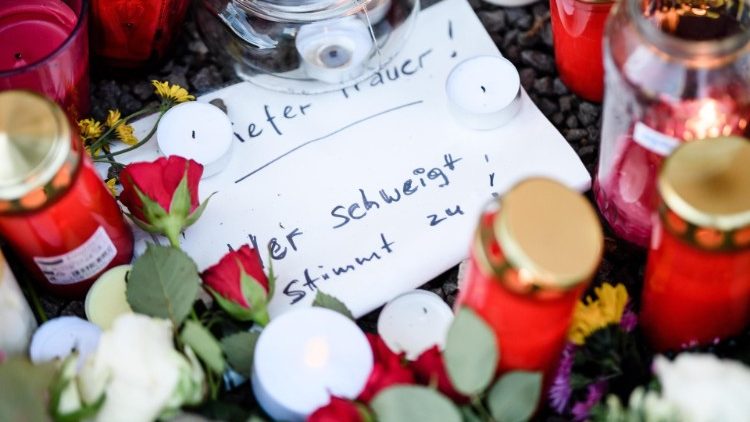 iefer Trauer!
Wer schweigt
stimmt zu!